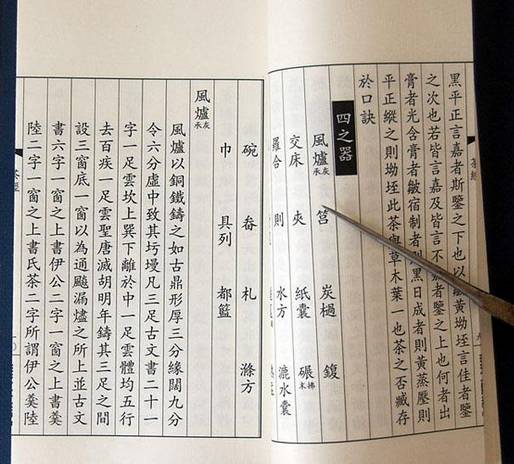 茶經
黑平正言嘉者斯鑒之下也以黃坳垤言佳者鑒
之次也若皆言嘉及皆言不者鑒之上也何者出
膏者光含膏者皺宿制者則黑日成者則黃蒸壓則
平正縱之則坳垤此茶與草木葉一也茶之否臧存
於口訣
四之器
風爐灰承 筥 炭檛 鍑
交床 夾 紙囊 碾拂末
羅合 則 水方 漉水囊
碗 畚 札 滌方
巾 具列 都籃
風爐灰承
風爐以銅鐵鑄之如古鼎形厚三分緣闊九分
令六分虛中致其圬墁凡三足古文書二十一
字一足雲坎上巽下離於中一足雲體均五行
去百疾一足雲聖唐滅胡明年鑄其三足之間
設三窗底一窗以為通飆漏燼之所上並古文
書六字一窗之上書伊公二字一窗之上書羹
陸二字一窗之上書氏茶二字所謂伊公羹陸
茶經